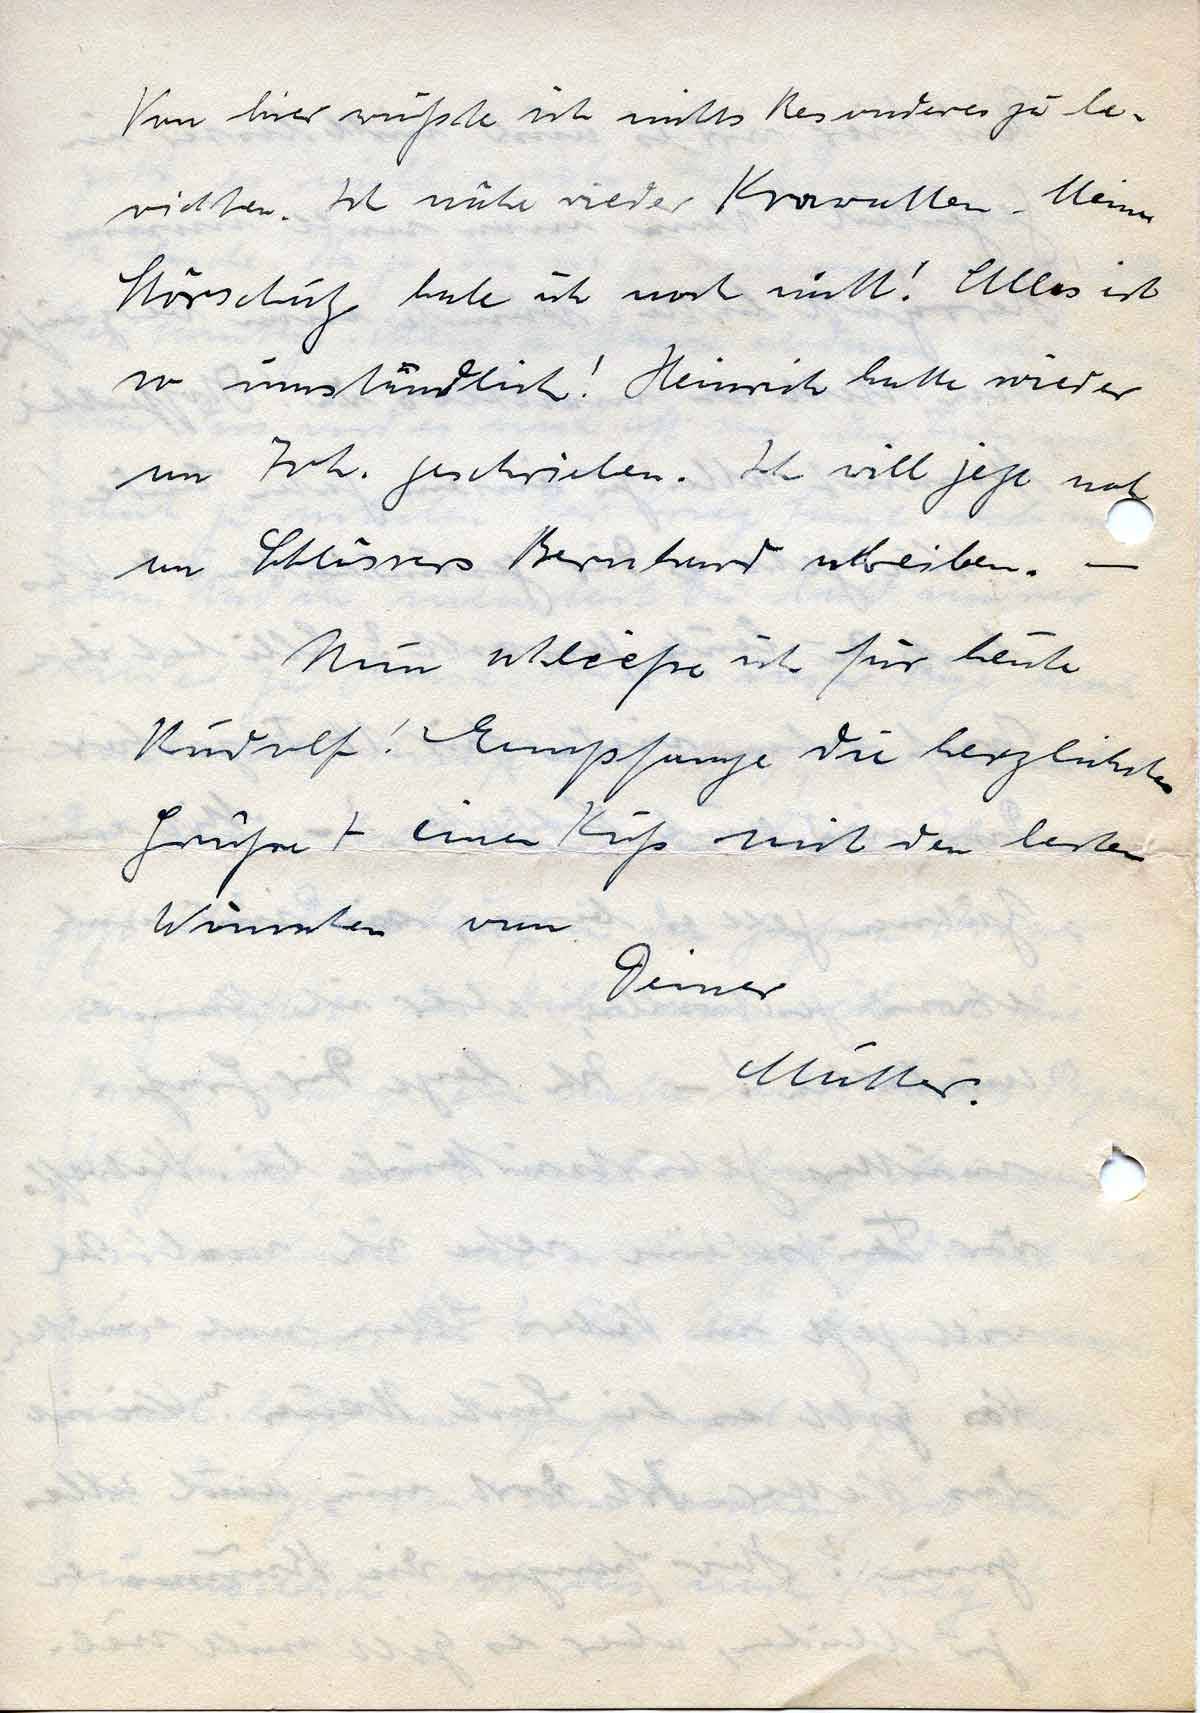 Von hier wüßte ich nichts Besonderes zu be-
richten. Ich nähe wieder Krawatten. Meinen
Störschutz habe ich noch nicht! Alles ist
so umständlich! Heinrich hatte wieder
an Joh. geschrieben. Ich will jetzt noch
an Schlössers Bernhard schreiben. —
Nun schließe ich für heute
Rudolf! Empfange die herzlichsten
Grüße + einen Kuß mit den besten
Wünschen von
Deiner
Mutter.